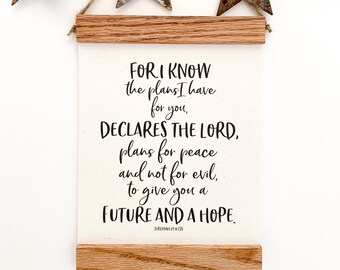 FOR I KNOW
the plans I have
for you,
DECLARES THE LORD,
plans for peace
and not for evil,
to give you a
FUTURE AND A HOPE.